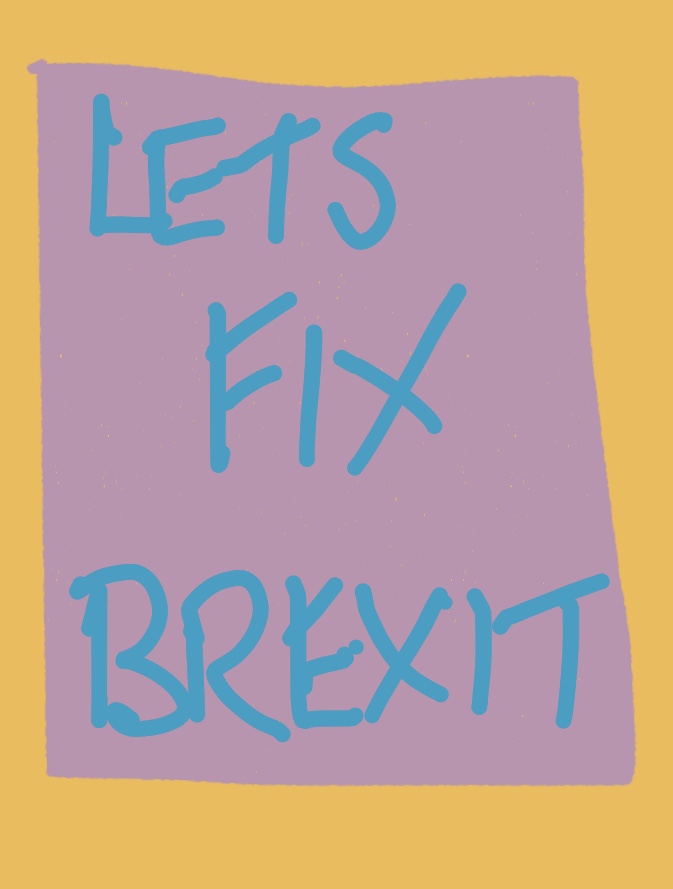 LETS
FIX
BREXIT